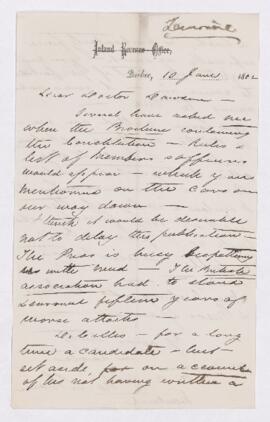 Lemoine
Inland Revenue Office,
Quebec, 10 June 1882
Dear Doctor Dawson —
Several have asked me
when the Brochure containing
the Constitution — Rules &
list of Members & officers
would appear — which you
mentioned on the cars on
our way down —
I think it would be desirable
not to delay this publication —
The Press is busy
in the mud — The British
association had to stand
several fifteen years of
worse attacks —
— for a long
time a candidate — but
set aside, on account
of his not having written a